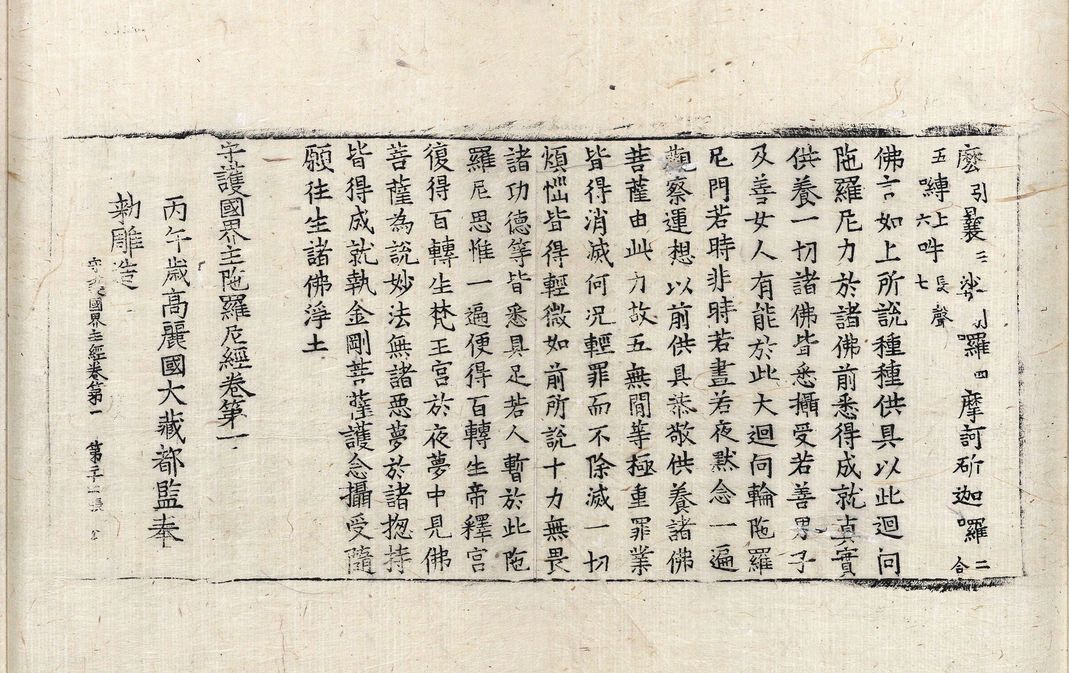 麼引曩三娑引囉四摩訶斫迦囉二合
五嚩上六吽長聲七
佛言如上所說種種供具以此迴向
陁羅尼力於諸佛前悉得成就真實
供養一切諸佛皆悉攝受若善男子
及善女人有能於此大迴向輪陁羅
尼門若時非時若晝若夜黙念一遍
觀察運想以前供具恭敬供養諸佛
菩薩由此力故五無間等極重罪業
皆得消滅何況輕罪而不除滅一切
煩惱皆得輕微如前所說十力無畏
諸功德等皆悉具足若人暫於此陁
羅尼思惟一遍便得百轉生帝釋宮
復得百轉生梵王宮於夜夢中見佛
菩薩為說妙法無諸惡夢於諸揔持
皆得成就執金剛菩薩護念攝受隨
願往生諸佛淨土
守護國界主陁羅尼經卷第一
丙午歲高麗國大藏都監奉
勑雕造
守護國界主經卷第一 第 張